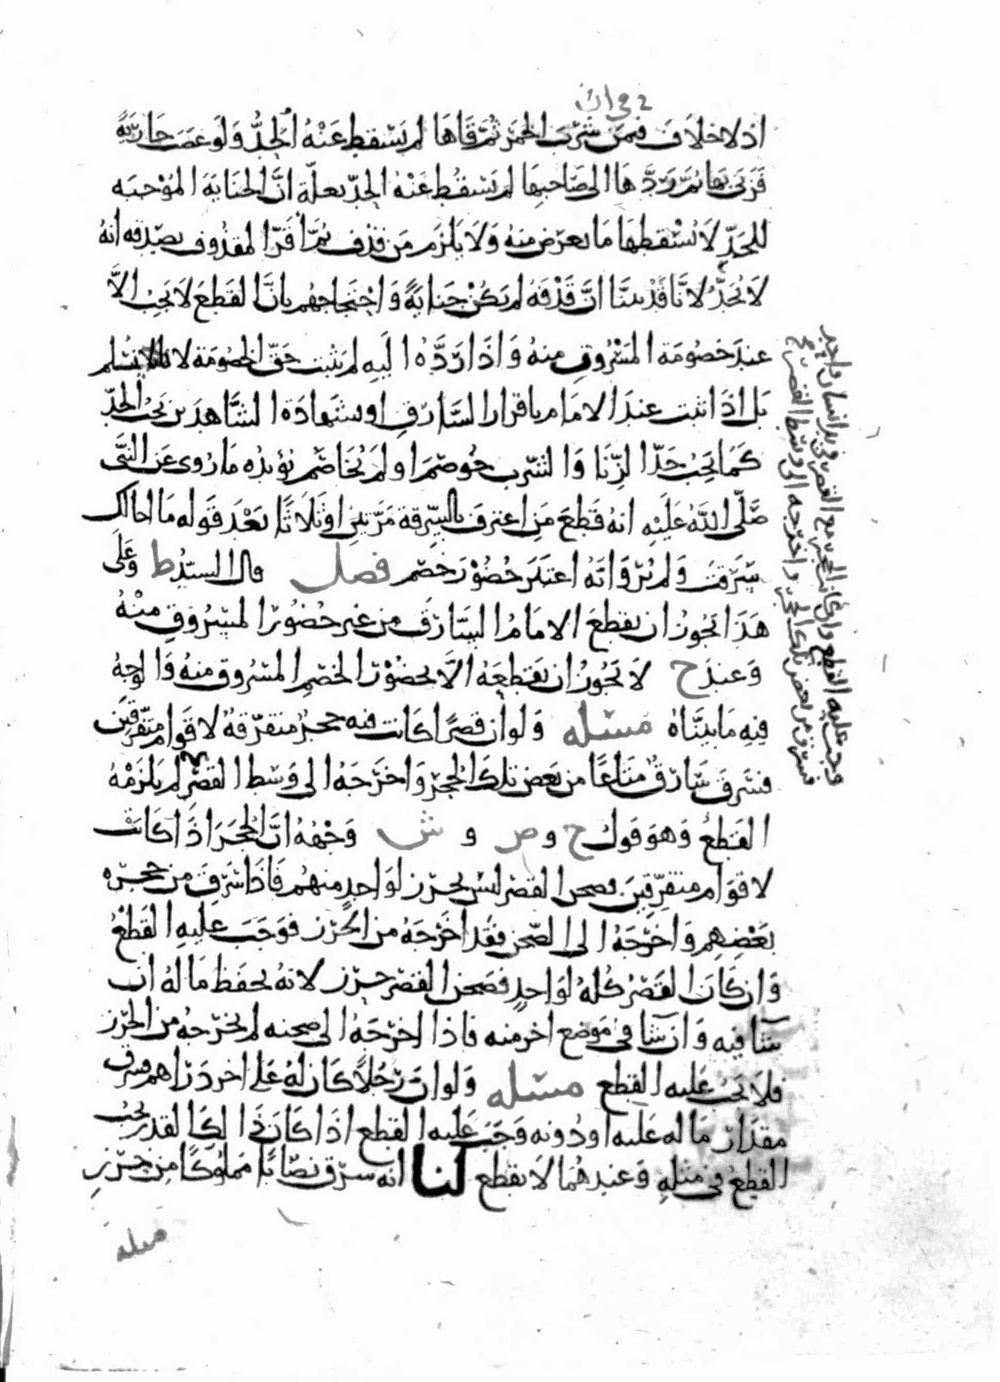 اذ لا خلاف فيمن شرب الخمر ثم قاها لم يسقط عنه الحد ولو غصب جارية
فزنى بها ثم ردها الى صاحبها لم يسقط عنه الحد بعلة ان الجناية الموجبه
للحد لا تسقطها ما يعرض منه ولا يلزم من قذف ثم اقر المقذوف بصدقه انه
لا يحد لانا قد بينا ان قذفه لم يكن جناية واحتجاجهم بان القطع لا يجب الا
عند خصومة المسروق منه واذا رده اليه لم يثبت حق الخصومة لانا لا نسلم
بل اذا ثبت عند الامام باقرار السارق او شهادة الشاهدين يجب الحد
كما يجب حد الزنا والشرب خوصم او لم يخاصم يؤيده ما روى عن النبى
صلى الله عليه انه قطع من اعترف بالسرقة مرتين او ثلاثا بعد قوله ما اخالك
سرقت ولم يرو انه اعتبر حضور خصم فصل قال السيد ط وعلى
هذا يجوز ان يقطع الامام السارق من غير حضور المسروق منه
وعند ح لا يجوز ان يقطعه الا بحضور الخصم المسروق منه والوجه
فيه ما بيناه مسئله ولو ان قصرا كانت فيه حجر متفرقة لاقوام متفرقين
فسرق سارق متاعا من بعض تلك الحجر واخرجه الى وسط القصر لم يلزمه
القطع وهو قول ح و ص و ش وجهه ان الحجر اذا كانت
لاقوام متفرقين فصحن القصر ليس بحرز لواحد منهم فاذا سرق من حجره
بعضهم واخرجه الى الصحن فقد اخرجه من الحرز فوجب عليه القطع
وان كان القصر كله لواحد فصحن القصر حرز لانه يحفظ ماله ان
شا فيه وان شا في موضع اخر منه فاذا اخرجه الى صحنه لم يخرجه من الحرز
فلا يجب عليه القطع مسئله ولو ان رجلا كان له على اخر دراهم فسرق
مقدار ماله عليه او دونه وجب عليه القطع اذا كان ذالك القدر يجب
القطع في مثله وعندهما لا يقطع لنا انه سرق نصابا مملوكا من حرز
وجب عليه القطع وان كانت الحجر مع القصر في يد انسان واحد
فسرق من بعض تلك الحجر واخرجه الى وسط القصر